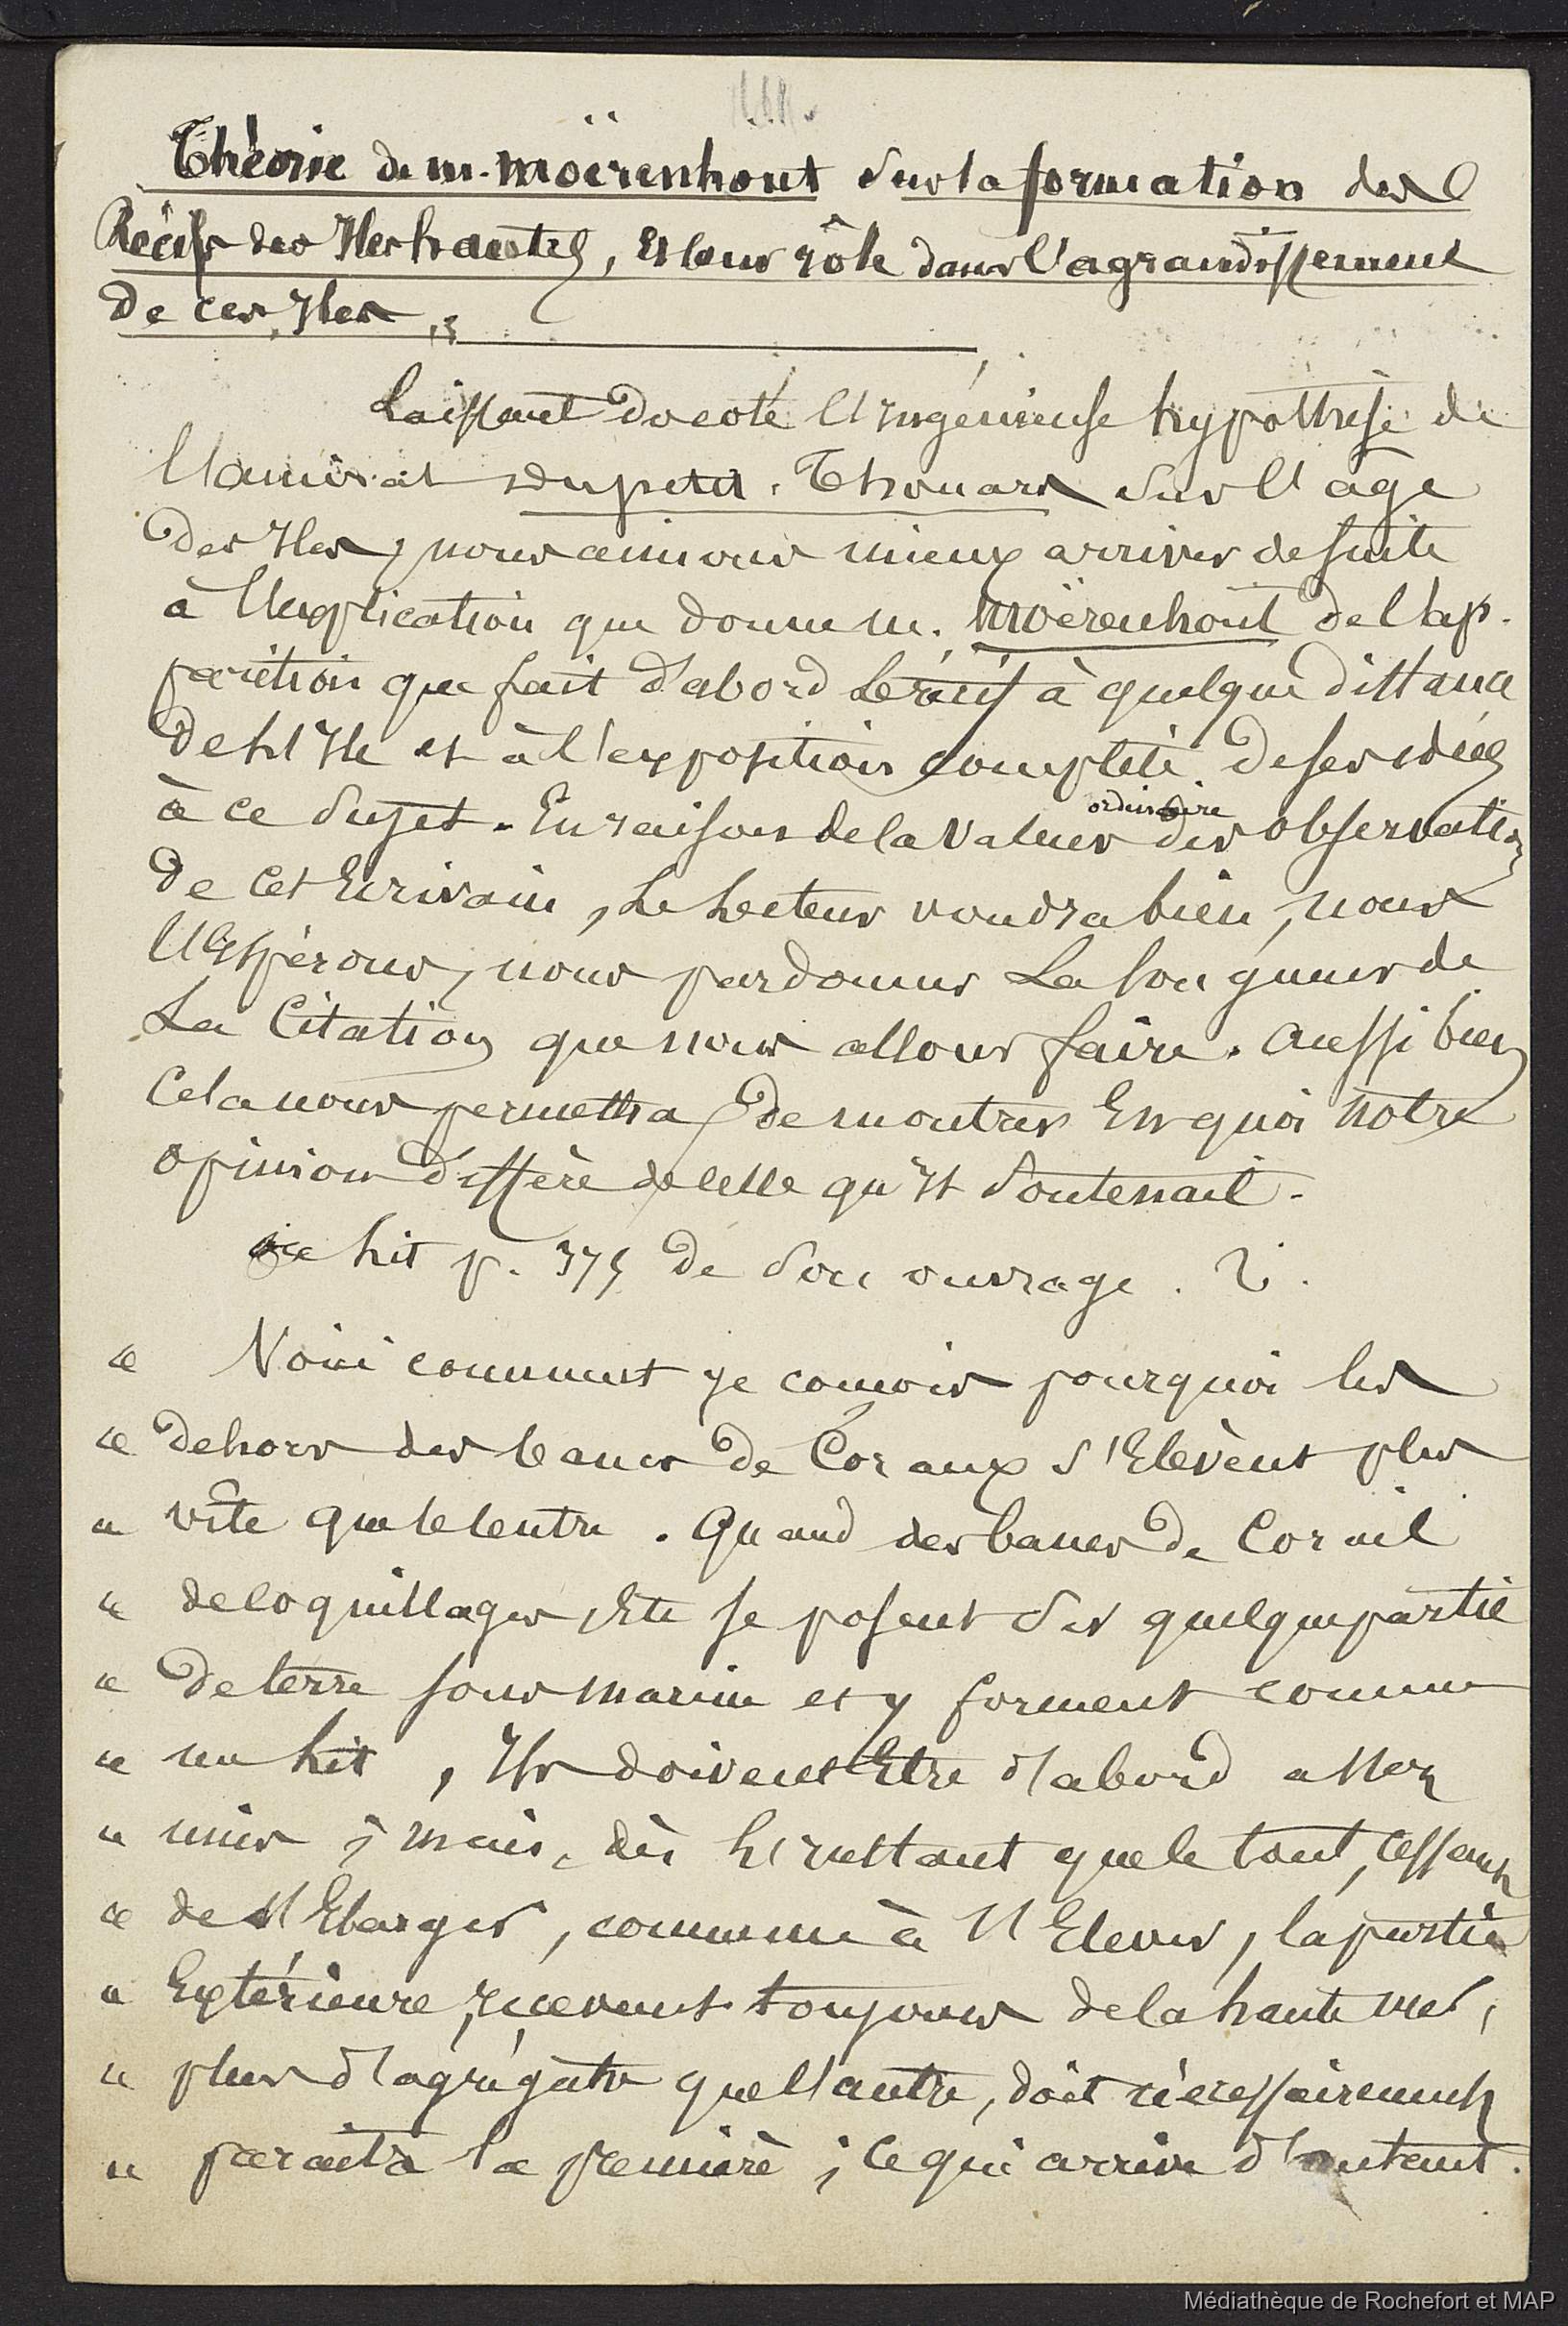 Théorie de m. moërenhout sur la formation des
Récifs des Iles hautes, et leur rôle dans l'agrandissement
de ces Iles.
Laissant de coté l'Ingénieuse hypothèse de
l'amiral Dupetit. Thouars sur l'age
des Iles, nous aimons mieux arriver de suite
à l'explication que donne m. moërenhout de l'ap-
parition que fait d'abord le récif à quelque distance
de l'Ile et à l'exposition complète de ses idées
à ce sujet. En raison de la valeur ordinaire des observations
de cet Ecrivain, le lecteur voudra bien, nous
l'Espérons, nous pardonner la longueur de
la Citation que nous allons faire. Aussi bien
Cela nous permettra de montrer En quoi notre
opinion diffère de celle qu'Il soutenait.
lit p. 375 de son ouvrage.
« Voici comment je conçois pourquoi les
« dehors des bancs de Coraux s'Elèvent plus
« vite que le centre. Quand des bancs de Corail
« de coquillages, Etc se posent sur quelque partie
« de terre sous marine et y forment comme
« un lit, Ils doivent Etre d'abord assez
« unis ; mais, dès l'Instant que le tout, cessant
« de s'Elargir, commence à s'Elever, la partie
« Extérieure, recevant toujours de la haute mer,
« plus d'agrégats que l'autre, doit nécessairement
« paraitre la première ; ce qui arrive d'autant
Médiathèque de Rochefort et MAP